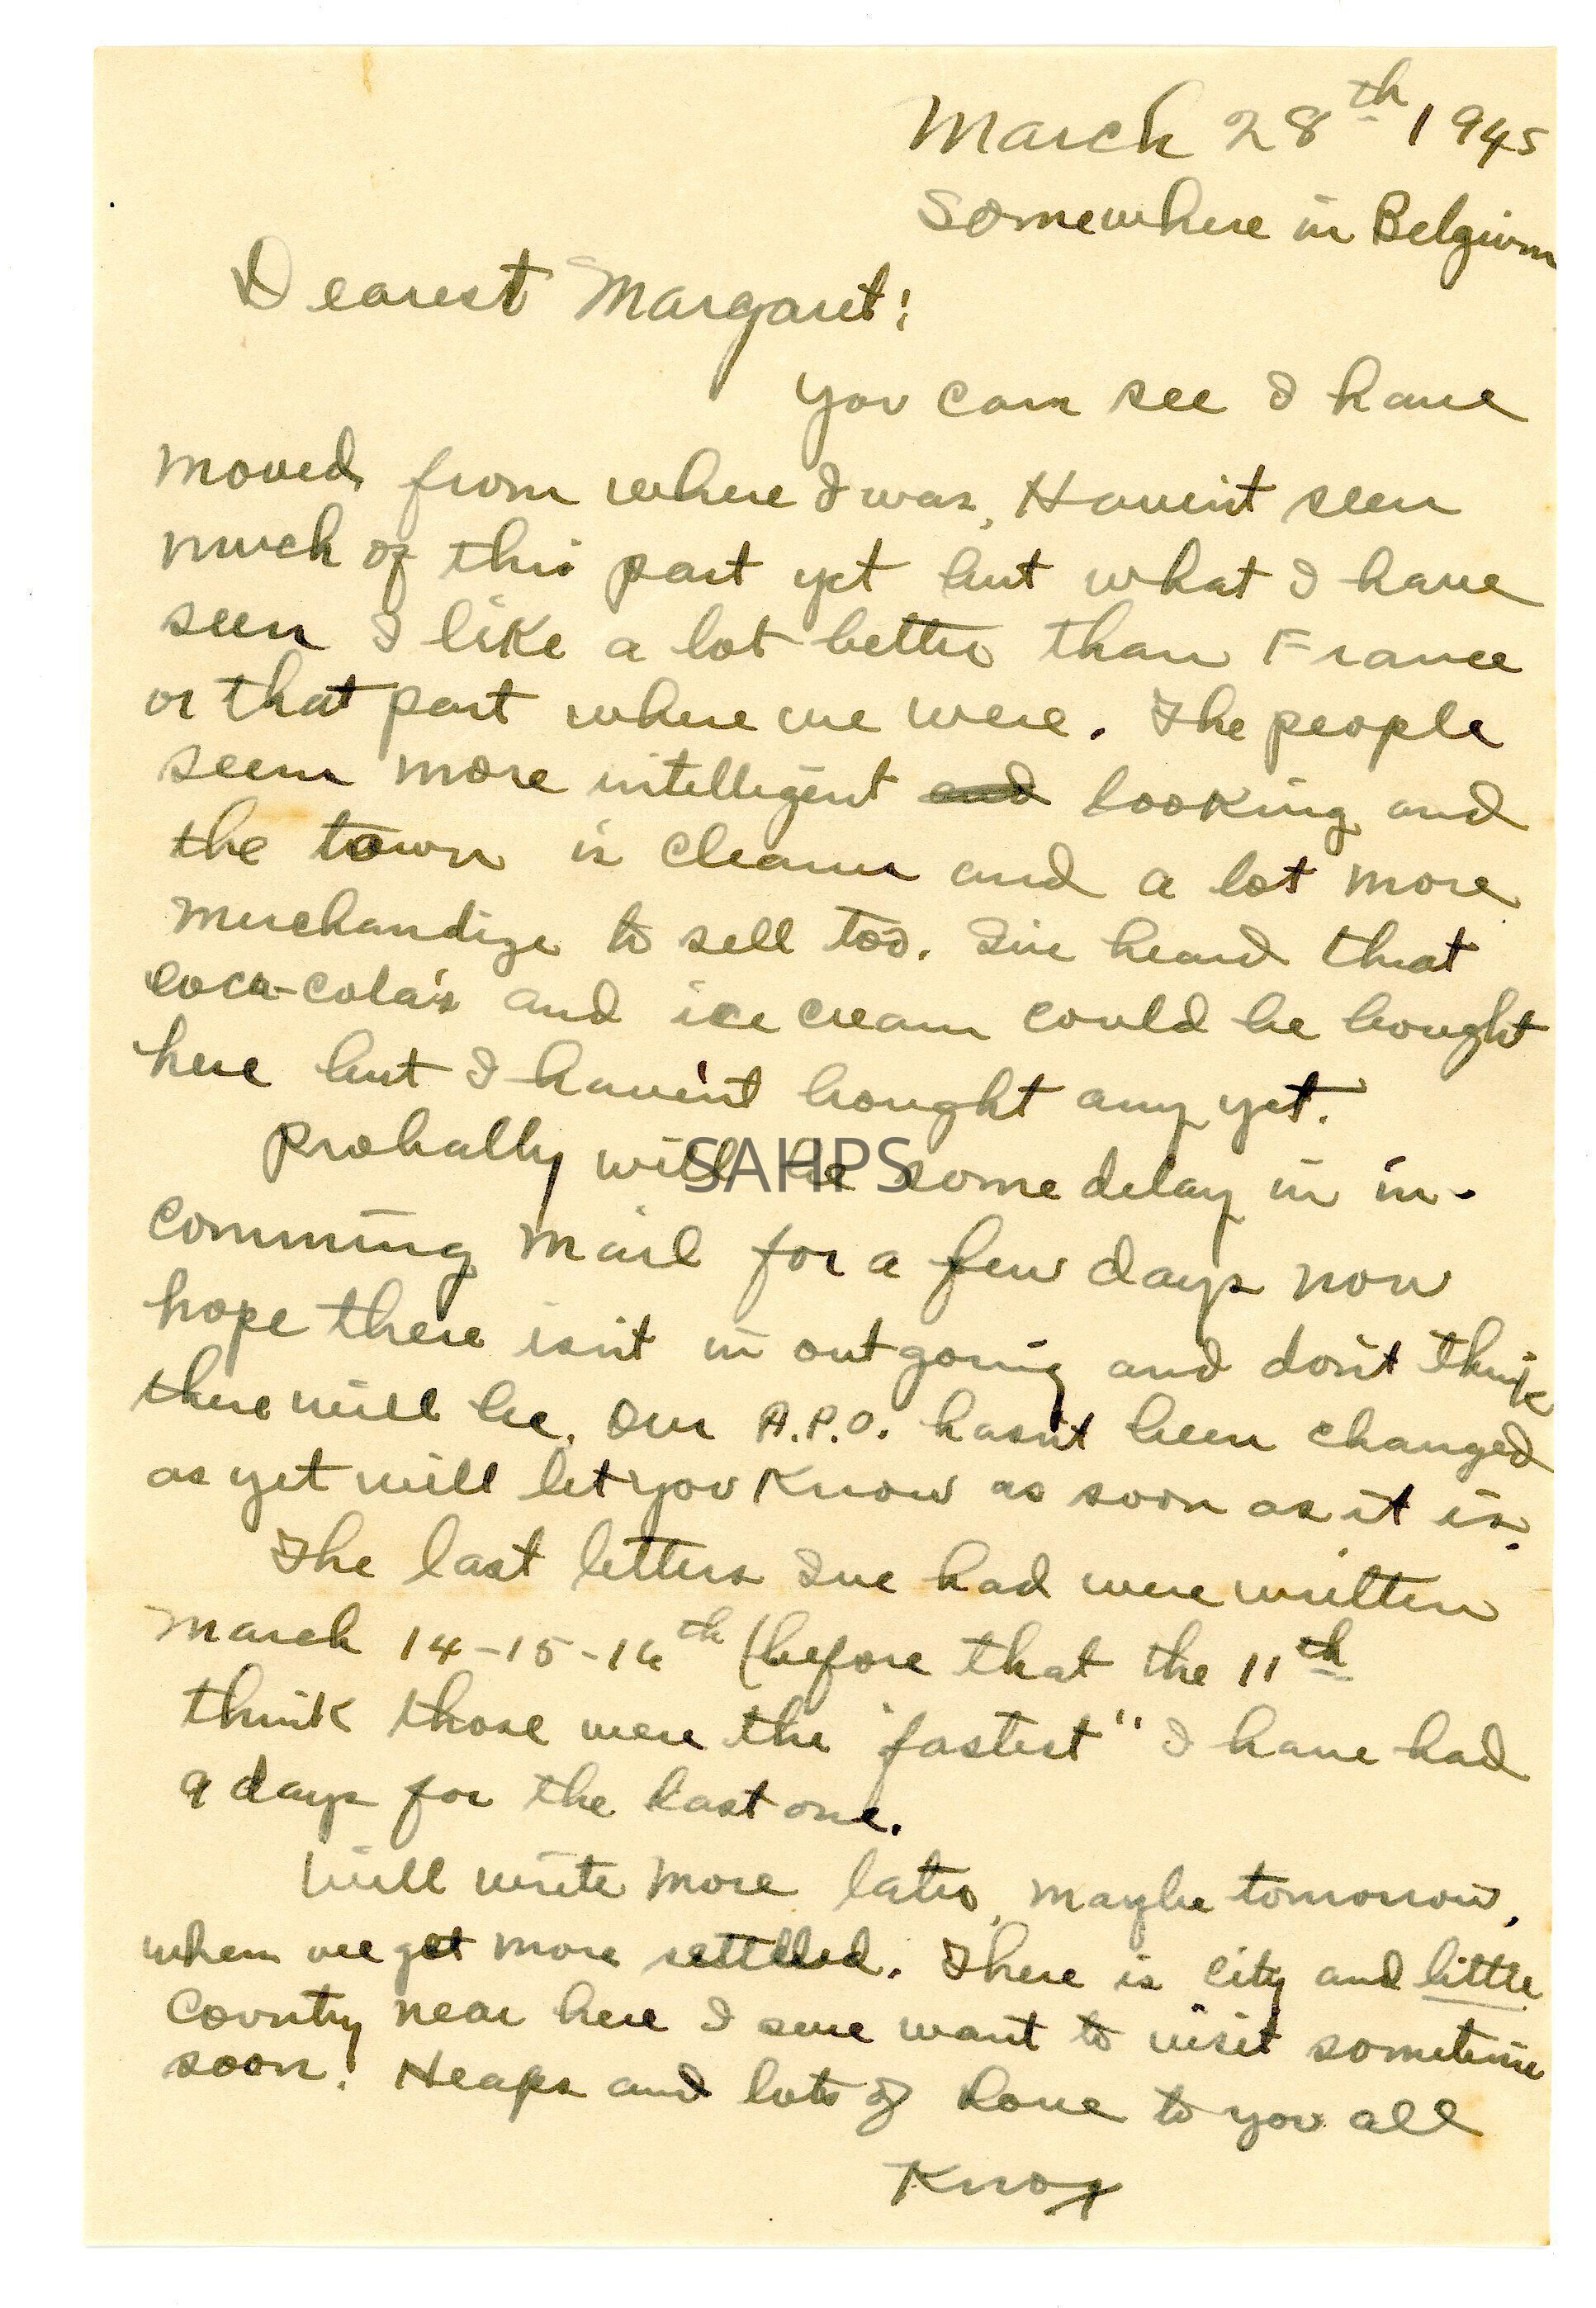 March 28th 1945
Somewhere in Belgium
Dearest Margaret:
You can see I have
moved from where I was, Haven't seen
much of this part yet but what I have
seen I like a lot better than France
or that part where we were. The people
seem more intelligent and looking and
the town is cleaner and a lot more
merchandize to sell too. I've heard that
coca-cola's and ice cream could be bought
here but I haven't bought any yet.
Probally will be some delay in in-
SAHPS
comming mail for a few days now
hope there isn't in outgoing and don't think
there will be. Our A.P.O. hasn't been changed
as yet will let you know as soon as it is.
The last letters I've had were written
March 14-15-16th (before that the 11th
think those were the "fastest" I have had
9 days for the last one.
Will write more later, maybe tomorrow,
when we get more settled. There is city and little
country near here I sure want to visit sometime
soon! Heaps and lots of love to you all
Knox